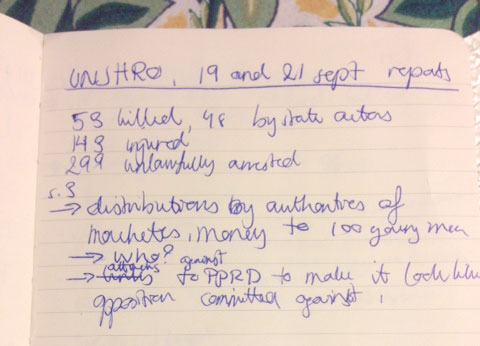 UNJHRO, 19 and 21 sept reports
53 killed, 48 by state actors
143 injured
299 unlawfully arrested
→ distributions by authorities of
machetes, money to 100 young men
→ who?
attacks against
→ to PPRD to make it look like
opposition committed against